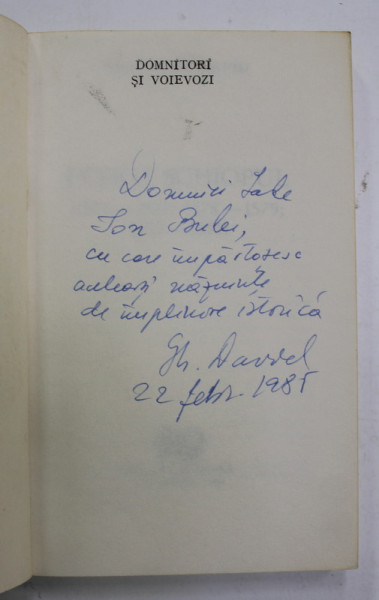 DOMNITORI
ȘI VOIEVOZI
Domniei Sale
Ion Bulei,
cu care împărtășesc
aceleași năzuințe
de împlinire istorică
Gh. David
22 febr. 1985